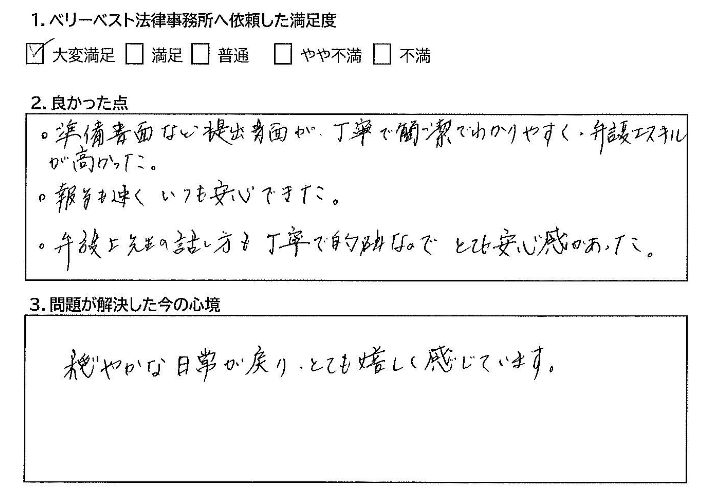 1. ベリーベスト法律事務所へ依頼した満足度
☑ 大変満足 □ 満足 □ 普通 □ やや不満 □ 不満
2. 良かった点
。準備書面など提出書面が、丁寧で簡潔でわかりやすく、弁護士スキル
が高かった。
。報告も速く いつも安心できた。
。弁護士先生の話し方も 丁寧で的確なので とても安心感があった。
3. 問題が解決した今の心境
穏やかな日常が戻り、とても嬉しく感じています。